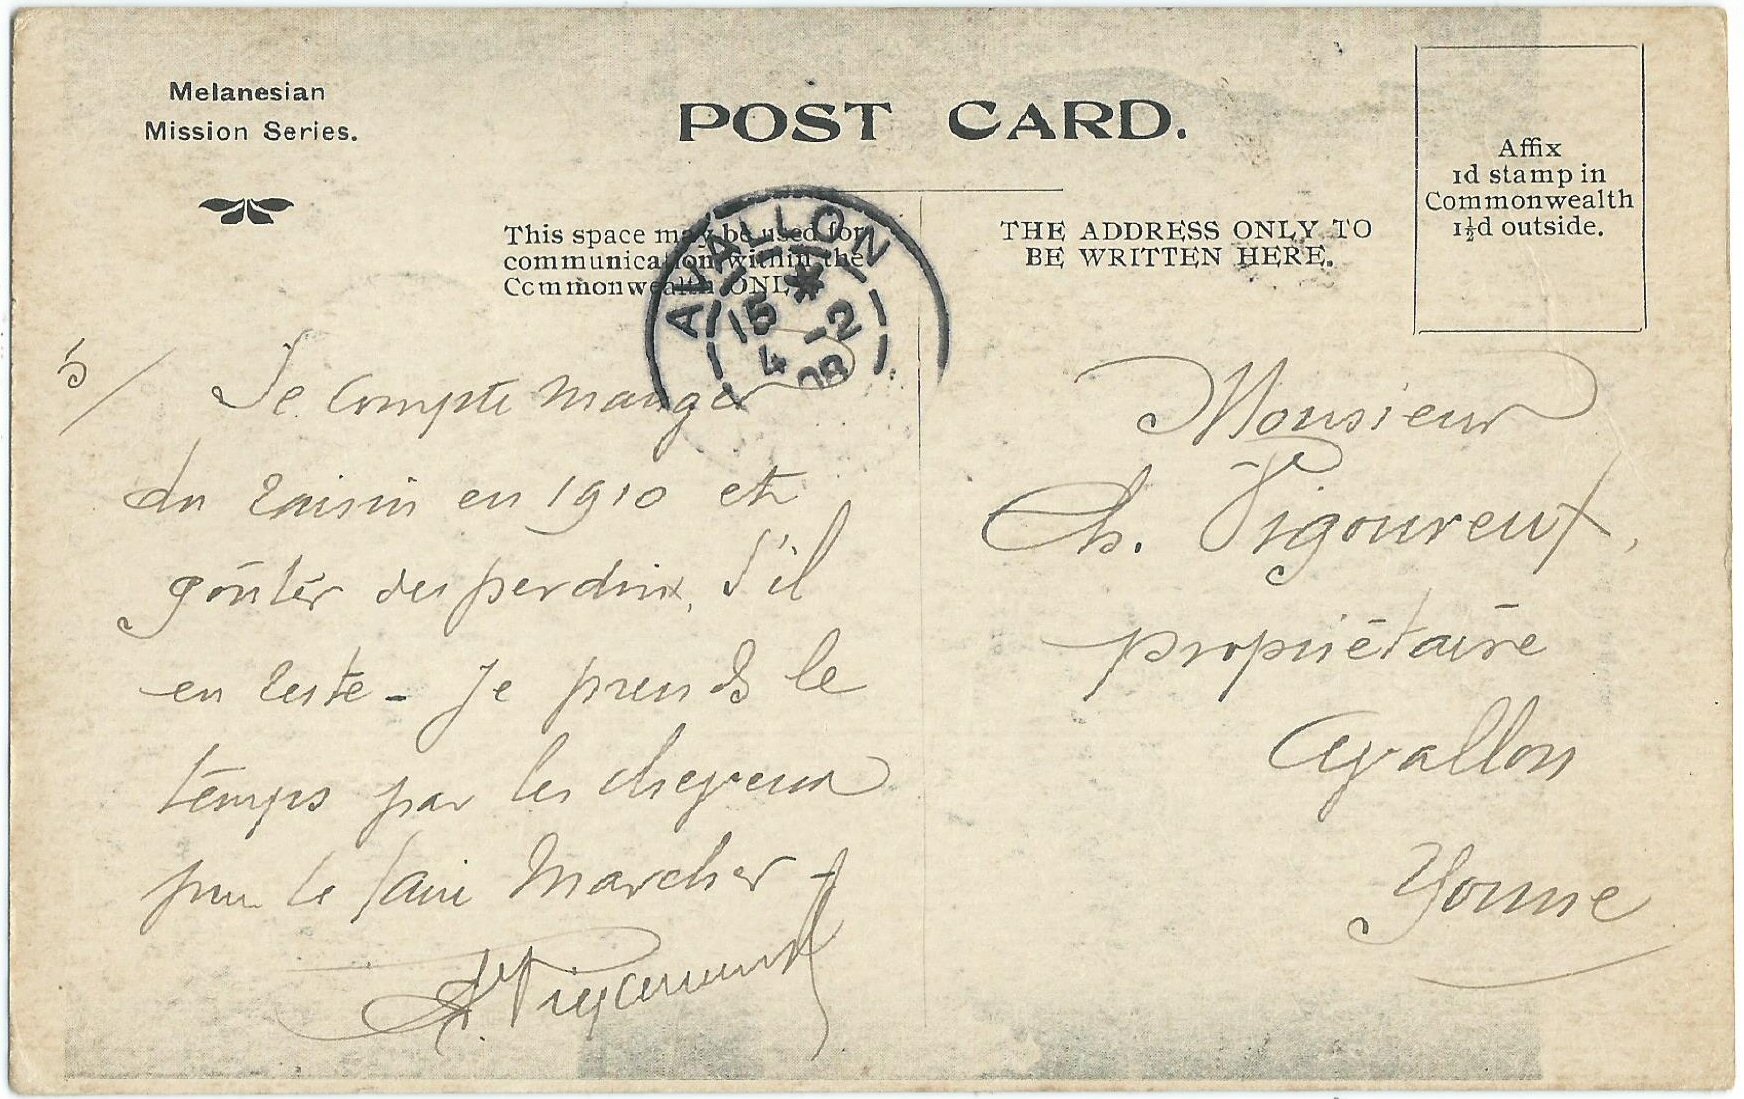 Melanesian
Mission Series.
POST CARD.
Affix
1d stamp in
Commonwealth
1½d outside.
This space may be used for
communication within the
Commonwealth ONLY
THE ADDRESS ONLY TO
BE WRITTEN HERE.
AVALLON
15 *
4 -2
08
5/
Je compte manger
du raisin en 1910 et
goûter des perdrix, s'il
en reste - Je prends le
temps par les cheveux
pour le faire marcher -
Vigoureux
Monsieur
Ch. Vigoureux,
propriétaire
Avallon
Yonne